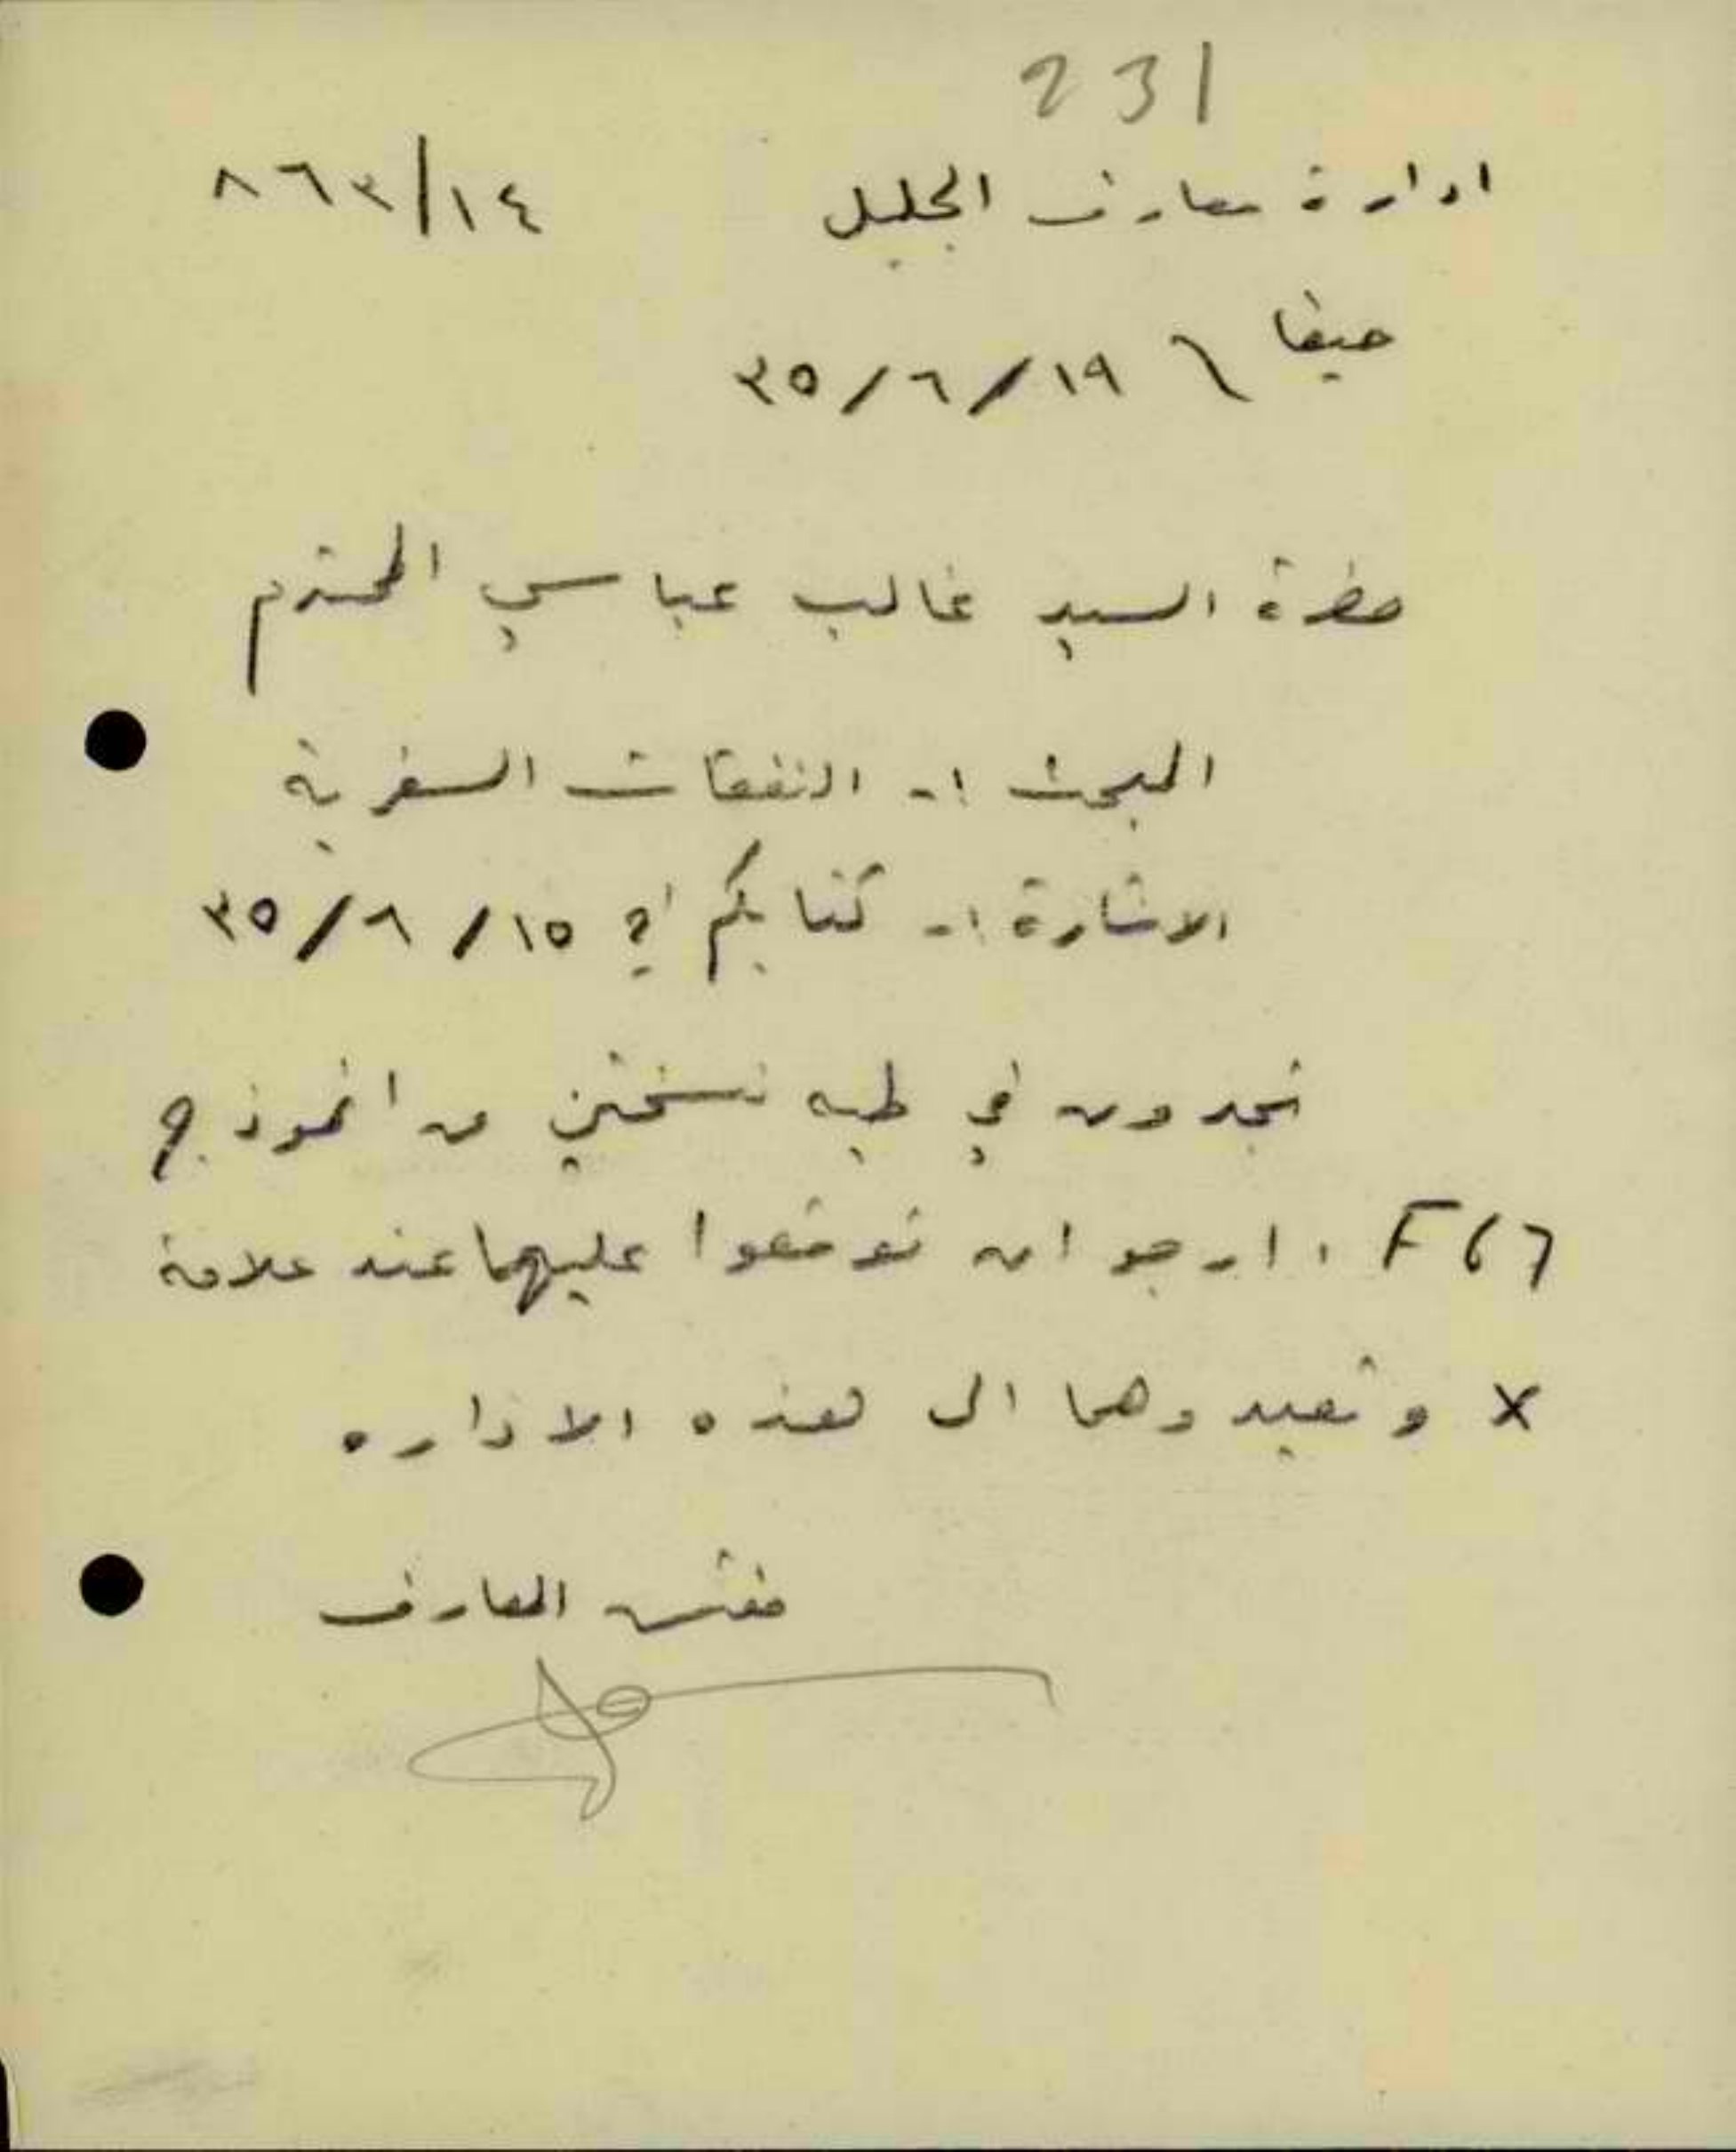 231
ادارة معارف الجليل ٨٦٣/١٤
حيفا ١٩/٦/٣٥
حضرة السيد غالب عباسي المحترم
المبحث :- النفقات السفرية
الاشارة :- كتابكم في ١٥/٦/٣٥
تجدون في طيه نسختين من انموذج
F67 ، ارجو ان توقعوا عليهما عند علامة
X وتعيدوهما الى هذه الاداره
مفتش المعارف